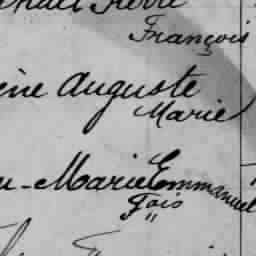 Pierre
François
ène Auguste
Marie
u-Marie Emmanuel
Fois
"